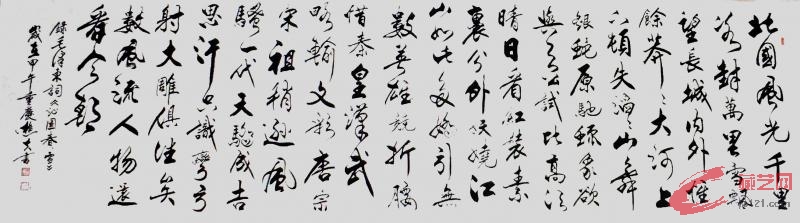 北國風光千里
冰封萬里雪飄
望長城內外惟
餘莽〻大河上
下頓失滔〻山舞
銀蛇原馳蠟象欲
與天公試比高須
晴日看紅裝素
裹分外妖嬈江
山如此多嬌引無
數英雄競折腰
惜秦皇漢武
略輸文彩唐宗
宋祖稍遜風
騷一代天驕成吉
思汗只識彎弓
射大雕俱往矣
數風流人物還
看今朝
錄毛澤東詞沁園春雪
歲在甲午重慶書
艺网